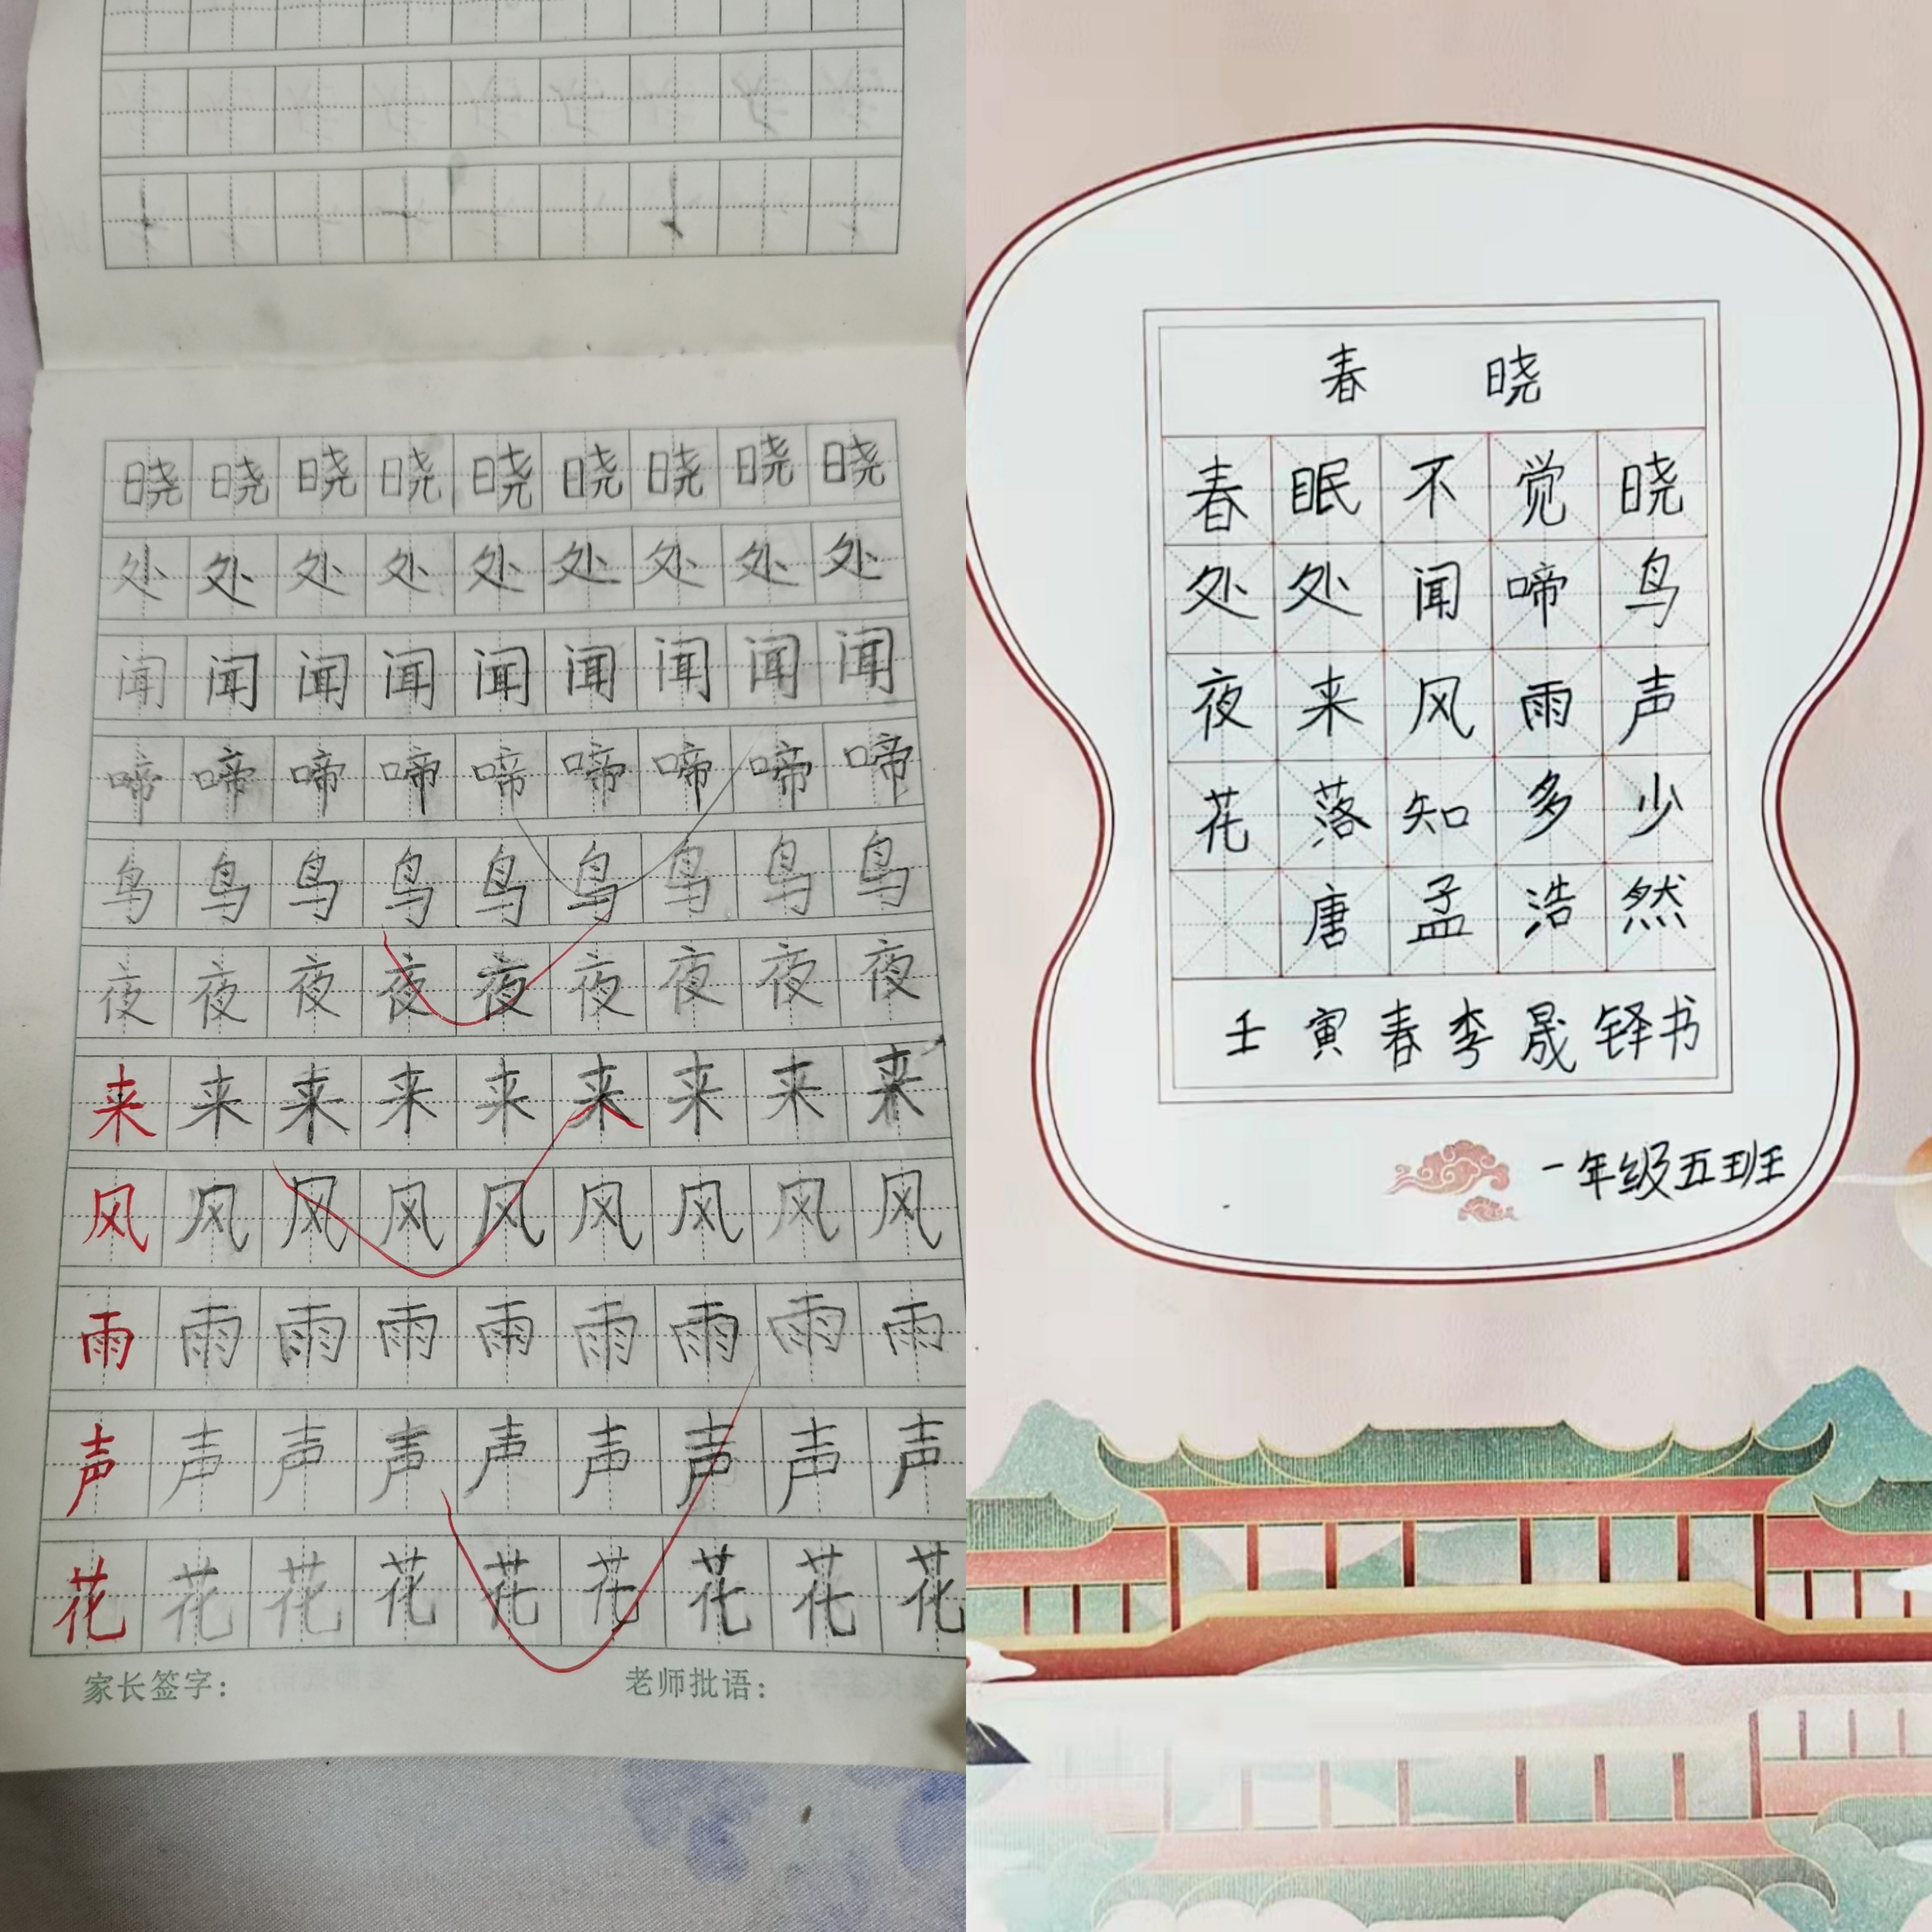 晓晓晓晓晓晓晓晓晓
处处处处处处处处处
闻闻闻闻闻闻闻闻闻
啼啼啼啼啼啼啼啼啼
鸟鸟鸟鸟鸟鸟鸟鸟鸟
夜夜夜夜夜夜夜夜夜
来来来来来来来来来
风风风风风风风风风
雨雨雨雨雨雨雨雨雨
声声声声声声声声声
花花花花花花花花花
家长签字： 老师批语：
春 晓
春眠不觉晓
处处闻啼鸟
夜来风雨声
花落知多少
唐孟浩然
壬寅春李晟铎书
一年级五班